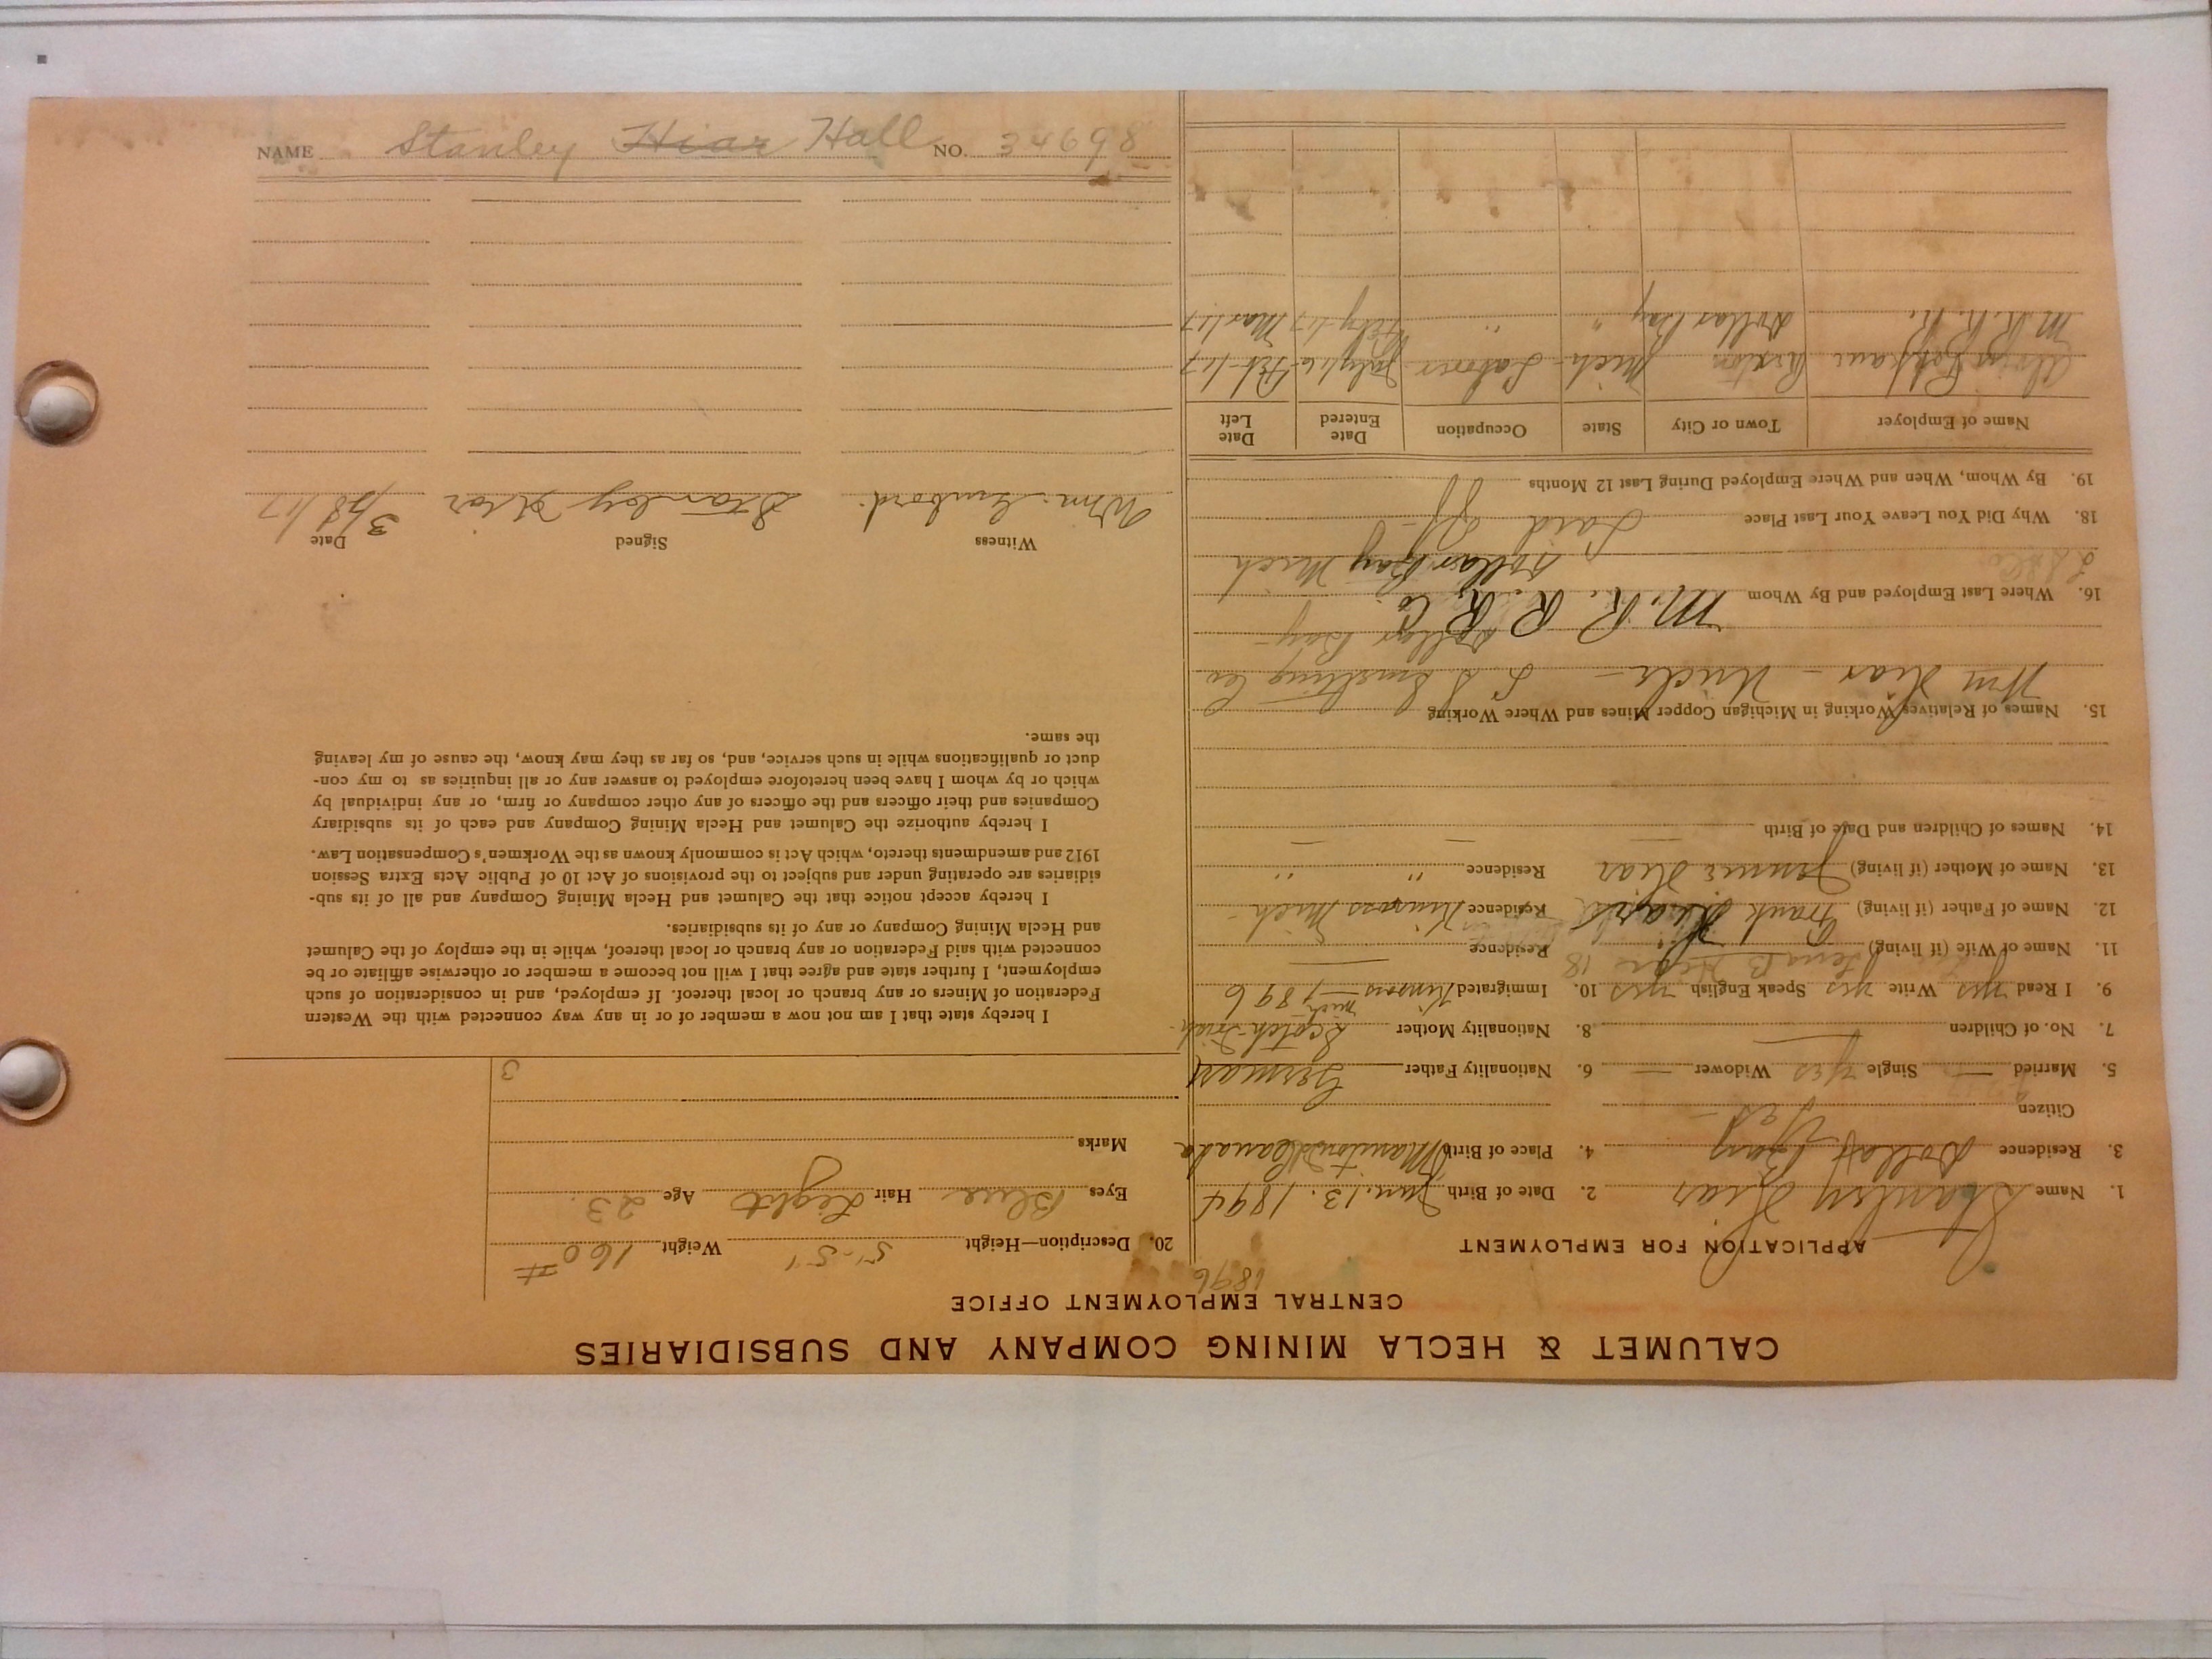 CALUMET & HECLA MINING COMPANY AND SUBSIDIARIES
CENTRAL EMPLOYMENT OFFICE
APPLICATION FOR EMPLOYMENT
1896
1. Name Stanley Hiar 2. Date of Birth Jun. 13. 1894
3. Residence Dollar Bay 4. Place of Birth Canada
Citizen Yes
5. Married — Single yes Widower — 6. Nationality Father German
7. No. of Children — 8. Nationality Mother Scotch-Irish
9. I Read yes Write yes Speak English yes 10. Immigrated 1896
11. Name of Wife (if living) Residence —
12. Name of Father (if living) Frank Residence Kinross Mich
13. Name of Mother (if living) Jennie Hiar Residence " "
14. Names of Children and Date of Birth — — —
15. Names of Relatives Working in Michigan Copper Mines and Where Working
Wm Hiar - Uncle - L. S. Smelting Co
Dollar Bay-
16. Where Last Employed and By Whom M. R. R. R. Co.
Dollar Bay Mich
18. Why Did You Leave Your Last Place Laid off
19. By Whom, When and Where Employed During Last 12 Months
Name of Employer Town or City State Occupation Date Entered Date Left
Mich - Laborer July/16 Feb-1-17
M. R. R. R. Dollar Bay " " Feby-17 Mar/17
20. Description—Height 5'-5" Weight 160 #
Eyes Blue Hair Light Age 23.
Marks
3
I hereby state that I am not now a member of or in any way connected with the Western
Federation of Miners or any branch or local thereof. If employed, and in consideration of such
employment, I further state and agree that I will not become a member or otherwise affiliate or be
connected with said Federation or any branch or local thereof, while in the employ of the Calumet
and Hecla Mining Company or any of its subsidiaries.
I hereby accept notice that the Calumet and Hecla Mining Company and all of its sub-
sidiaries are operating under and subject to the provisions of Act 10 of Public Acts Extra Session
1912 and amendments thereto, which Act is commonly known as the Workmen's Compensation Law.
I hereby authorize the Calumet and Hecla Mining Company and each of its subsidiary
Companies and their officers and the officers of any other company or firm, or any individual by
which or by whom I have been heretofore employed to answer any or all inquiries as to my con-
duct or qualifications while in such service, and, so far as they may know, the cause of my leaving
the same.
Witness Signed Date
Wm. Stanley Hiar 3/28/17
NAME Stanley Hiar Hall NO. 34698